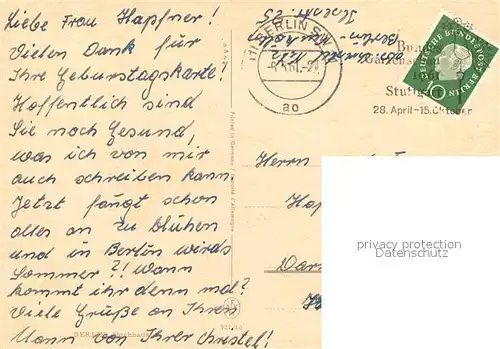 Liebe Frau Hapfner!
Vielen Dank für
Ihre Geburstagskarte!
Hoffentlich sind
Sie noch Gesund,
was ich von mir
auch schreiben kann.
Jetzt fängt schon
alles an zu blühen
und in Berlin wirds
Sommer?! Wann
kommt ihr denn mal?
Viele Grüße an Ihren
Mann von Ihrer Christel!
BERLIN SW
61.-2
ao
Bun
Gartenschau
1961
Stuttgart
28. April-15.Oktober
DEUTSCHE BUNDESPOST BERLIN
10
Berlin-
Herrn
Ha
Darm
privacy protection
Datenschutz
BERLIN, Hochhaus